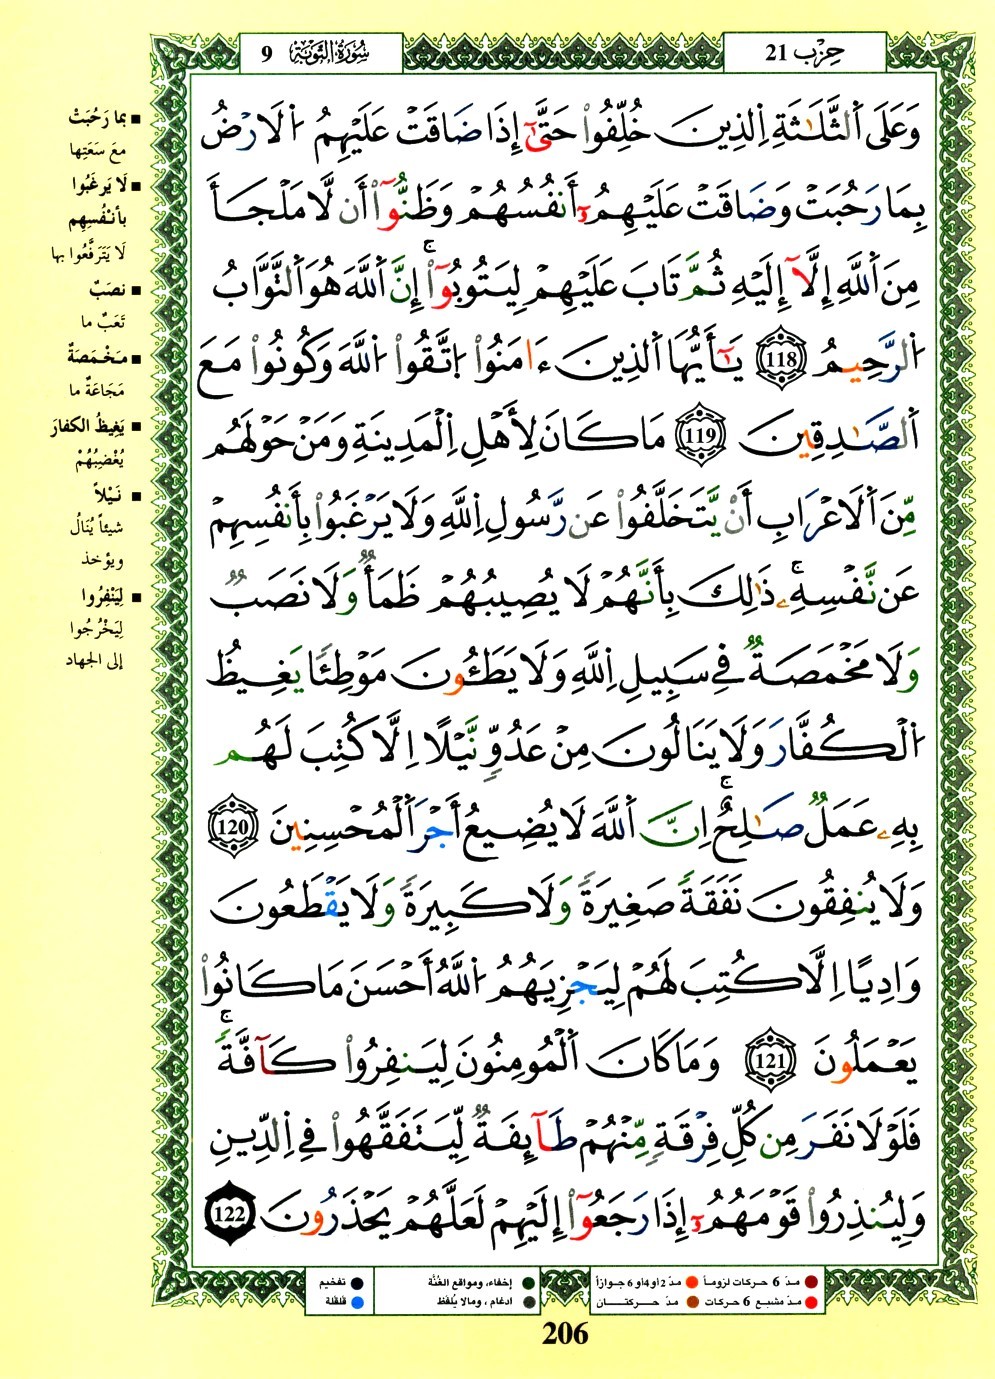 حِزْب 21
سُورَةُ التَّوْبَةِ 9
وَعَلَى اَ۬لثَّلَٰثَةِ اِ۬لذِينَ خُلِّفُواْ حَتَّىٰٓ إِذَا ضَاقَتْ عَلَيْهِمُ اُ۬لَارْضُ
بِمَا رَحُبَتْ وَضَاقَتْ عَلَيْهِمُۥٓ أَنفُسُهُمْ وَظَنُّوٓاْ أَن لَّا مَلْجَأَ
مِنَ اَ۬للَّهِ إِلَّآ إِلَيْهِ ثُمَّ تَابَ عَلَيْهِمْ لِيَتُوبُوٓاْۚ إِنَّ اَ۬للَّهَ هُوَ اَ۬لتَّوَّابُ
اُ۬لرَّحِيمُ 118 يَٰٓأَيُّهَا اَ۬لذِينَ ءَامَنُواْ اُ۪تَّقُواْ اُ۬للَّهَ وَكُونُواْ مَعَ
اَ۬لصَّٰدِقِينَ 119 مَا كَانَ لِأَهْلِ اِ۬لْمَدِينَةِ وَمَنْ حَوْلَهُم
مِّنَ اَ۬لَاعْرَابِ أَنْ يَّتَخَلَّفُواْ عَن رَّسُولِ اِ۬للَّهِ وَلَا يَرْغَبُواْ بِأَنفُسِهِمْ
عَن نَّفْسِهِۦۚ ذَٰلِكَ بِأَنَّهُمْ لَا يُصِيبُهُمْ ظَمَأٌ وَلَا نَصَبٌ
وَلَا مَخْمَصَةٌ فِے سَبِيلِ اِ۬للَّهِ وَلَا يَطَـُٔونَ مَوْطِئاً يَغِيظُ
اُ۬لْكُفَّارَ وَلَا يَنَالُونَ مِنْ عَدُوٍّ نَّيْلًا اِلَّا كُتِبَ لَهُم
بِهِۦ عَمَلٌ صَٰلِحٌۚ اِنَّ اَ۬للَّهَ لَا يُضِيعُ أَجْرَ اَ۬لْمُحْسِنِينَ 120
وَلَا يُنفِقُونَ نَفَقَةً صَغِيرَةً وَلَا كَبِيرَةً وَلَا يَقْطَعُونَ
وَادِياً اِلَّا كُتِبَ لَهُمْ لِيَجْزِيَهُمُ اُ۬للَّهُ أَحْسَنَ مَا كَانُواْ
يَعْمَلُونَ 121 وَمَا كَانَ اَ۬لْمُومِنُونَ لِيَنفِرُواْ كَآفَّةًۚ
فَلَوْلَا نَفَرَ مِن كُلِّ فِرْقَةٍ مِّنْهُمْ طَآئِفَةٌ لِّيَتَفَقَّهُواْ فِے اِ۬لدِّينِ
وَلِيُنذِرُواْ قَوْمَهُمُۥٓ إِذَا رَجَعُوٓاْ إِلَيْهِمْ لَعَلَّهُمْ يَحْذَرُونَ 122
■ بما رَحُبَتْ
مَع سَعَتِها
■ لَا يَرغَبُوا
بأنـْفُسِهِم
لَا يَتَرَفَّعُوا بها
■ نصَبٌ
تَعَبٌ ما
■ مَخْمَصَةٌ
مَجَاعَةٌ ما
■ يَغِيظُ الكفارَ
يُغْضِبُهُمْ
■ نَـيْلاً
شيئاً يُنَالُ
ويؤخذ
■ لِيَنْفِرُوا
لِيَخْرُجوا
إلى الجهاد
● مدّ 6 حركات لزوماً ● مدّ 2 أو 4 أو 6 جوازاً
● مدّ مشبع 6 حركات ● مدّ حركتان
● إخفاء، ومواقع الغُنَّة
● ادغام ، ومالا يُلفَظ
● تفخيم
● قلقلة
206